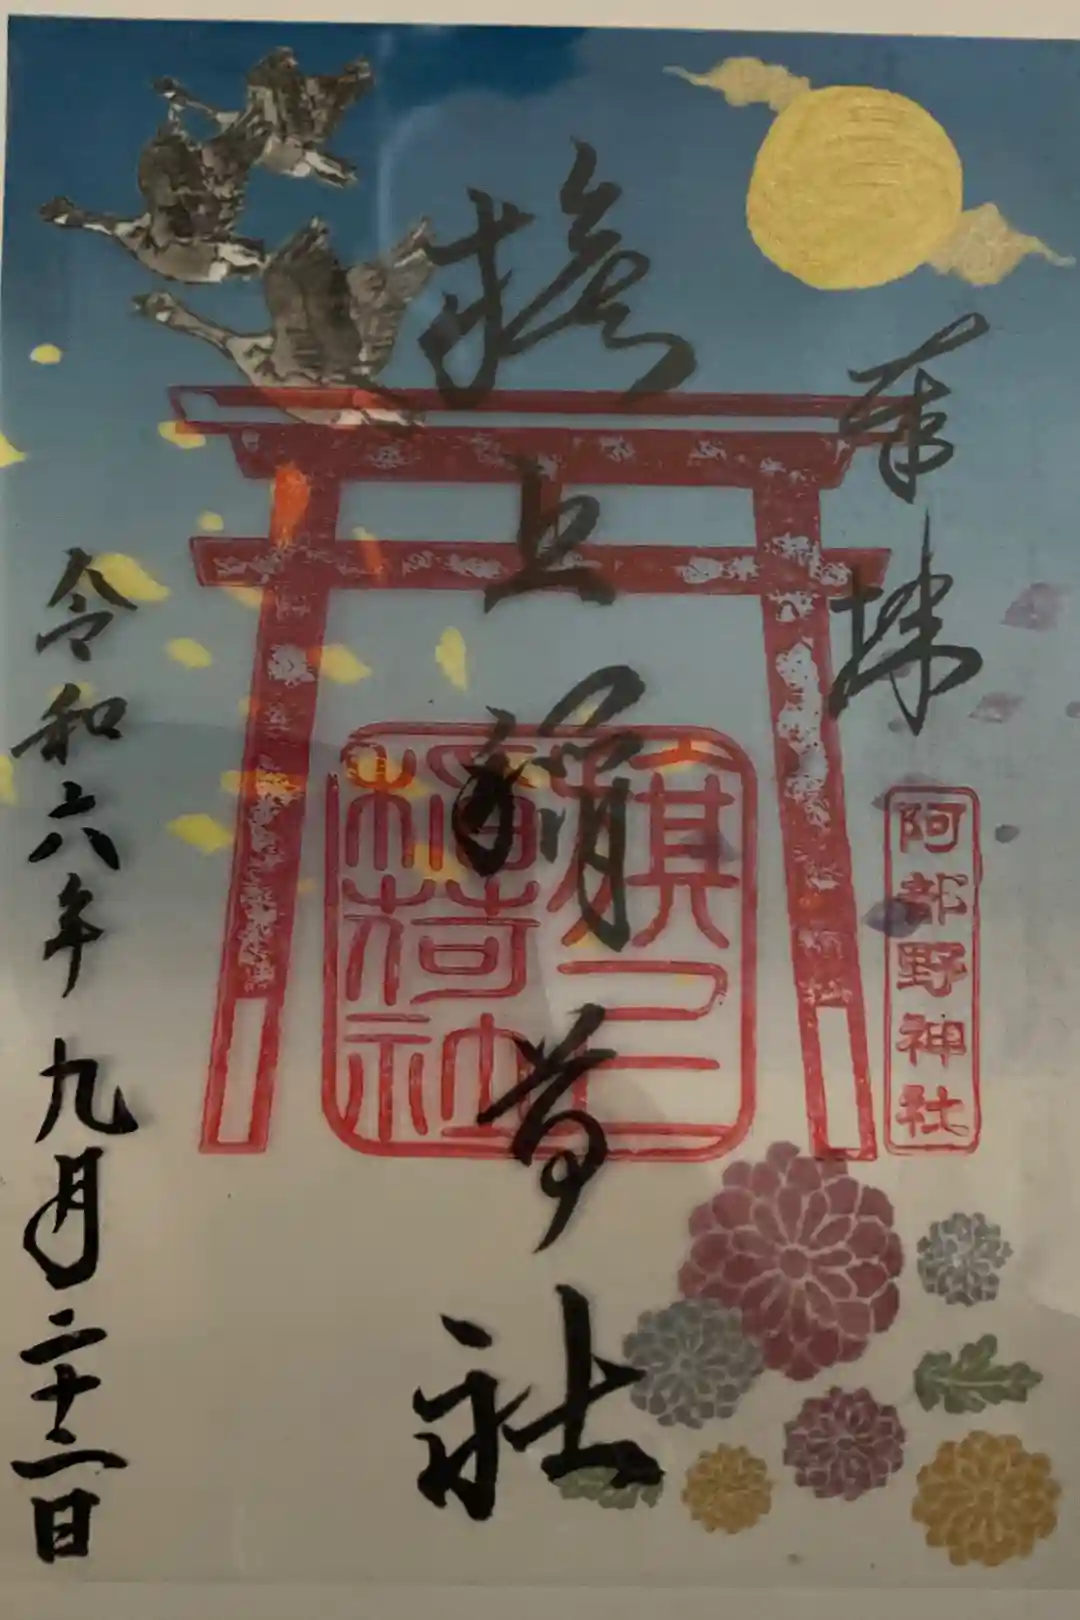 奉拝
旗上稲荷社
阿部野神社
旗上
稲荷社
令和六年九月二十二日